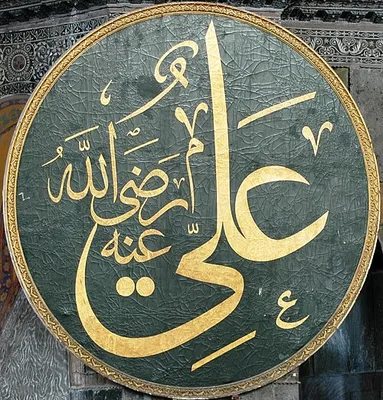 عَلِيّ
رَضِيَ اللهُ
عنه